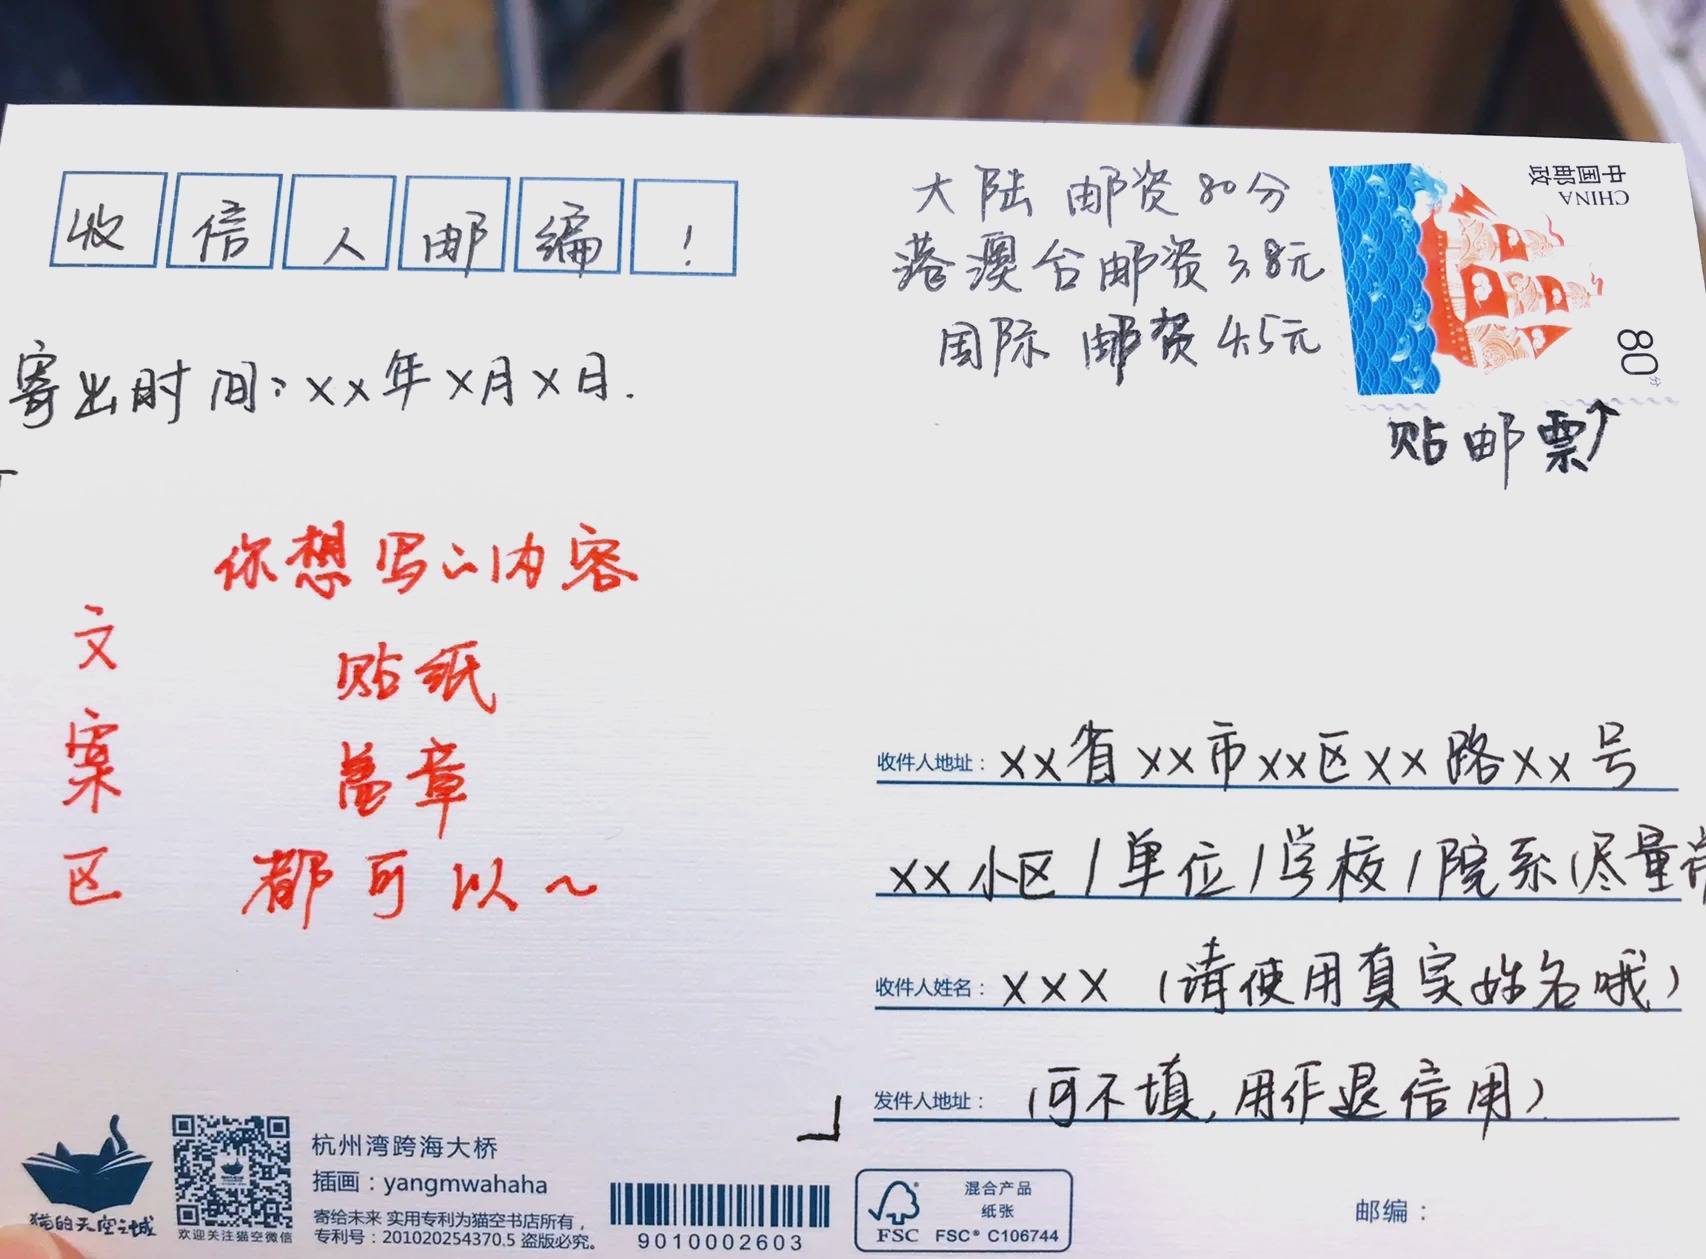 收信人邮编!
大陆 邮资80分
港澳台邮资3.8元
国际 邮资4.5元
中国邮政
CHINA
80分
贴邮票
寄出时间:××年×月×日.
你想写的内容
贴纸
盖章
都可以~
文案区
收件人地址：××省××市××区××路××号
××小区/单位/学校/院系(尽量
收件人姓名：×××（请使用真实姓名哦）
发件人地址：（可不填,用作退信用）
邮编：
猫的天空之城
欢迎关注猫空微信
杭州湾跨海大桥
插画：yangmwahaha
寄给未来 实用专利为猫空书店所有，
专利号：201020254370.5 盗版必究。
9010002603
FSC
混合产品
纸张
FSC® C106744